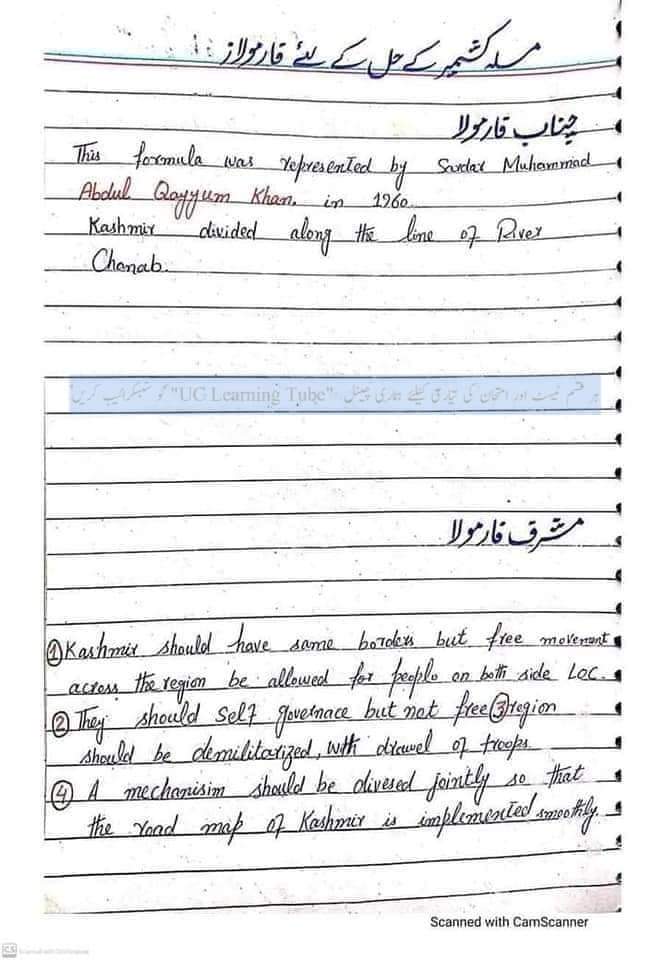 مسلہ کشمیر کے حل کے لئے فارمولاز
چناب فارمولا
This formula was represented by Sardar Muhammad
Abdul Qayyum Khan. in 1960.
Kashmir divided along the line of River
Chanab.
ہر قسم ٹیسٹ اور امتحان کی تیاری کیلئے ہماری چینل "UG Learning Tube" کو سبسکرائیب کریں
مشرف فارمولا
① Kashmir should have same borders but free movement
across the region be allowed for people on both side LOC.
② They should self governace but not free ③ region
should be demilitarized, with drawel of troops
④ A mechanisim should be divesed jointly so that
the road map of Kashmir is implemented smoothly.
Scanned with CamScanner
CS Scanned with CamScanner